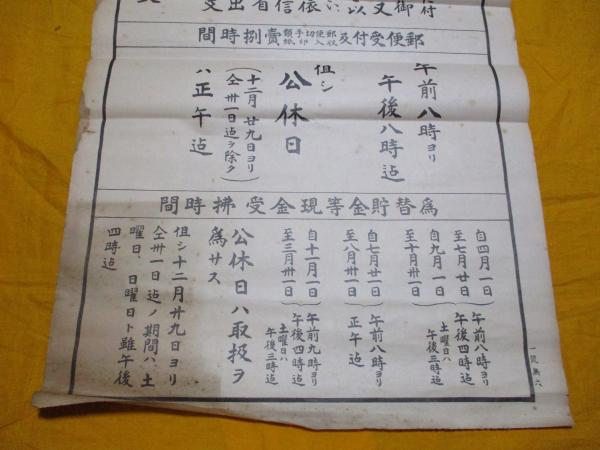 郵便受付及郵便切手収入印紙類賣捌時間
午前八時ヨリ
午後八時迠
但シ
公休日
(十二月廿九日ヨリ
仝卅一日迠ヲ除ク)
ハ正午迠
為替貯金等現金受拂時間
自四月一日
至七月廿日
自九月一日
至十月卅一日
午前八時ヨリ
午後四時迠
土曜日ハ
午後三時迠
自七月廿一日
至八月卅一日
午前八時ヨリ
正午迠
自十一月一日
至三月卅一日
午前九時ヨリ
午後四時迠
土曜日ハ
午後三時迠
公休日ハ取扱ヲ
為サス
但シ十二月廿九日ヨリ
仝卅一日迠ノ期間ハ、土
曜日、日曜日ト雖午後
四時迠